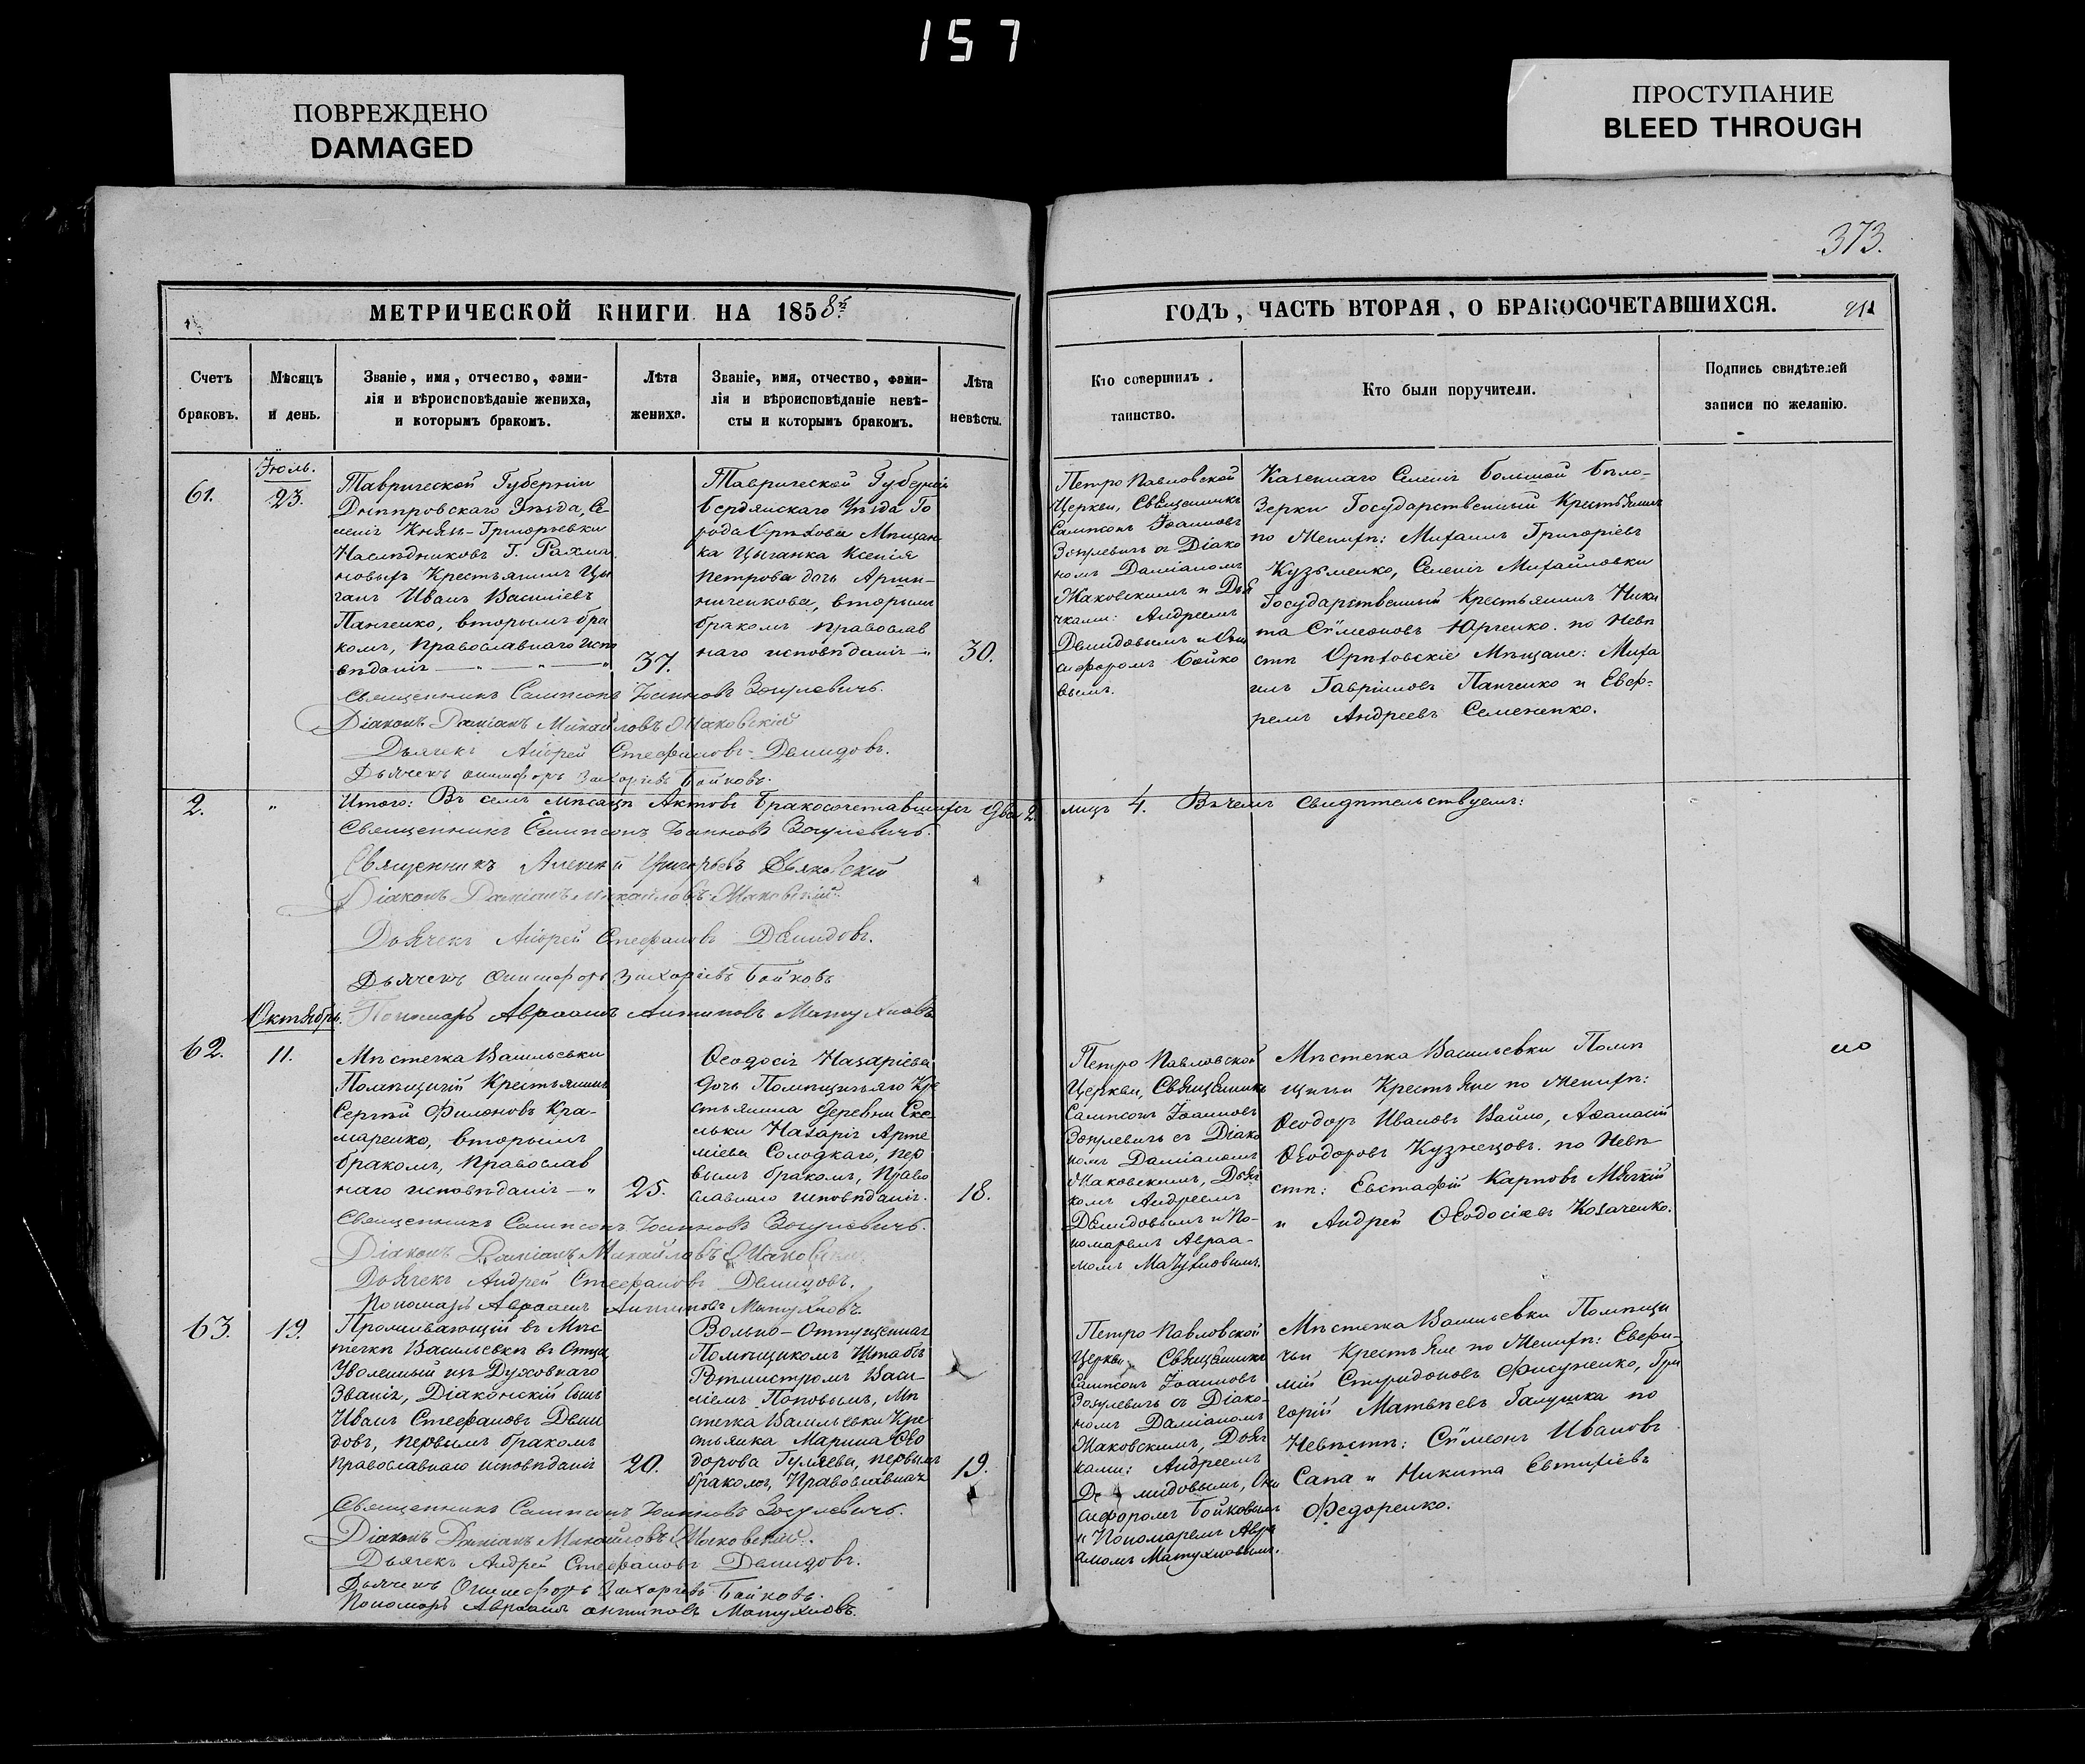 157
ПОВРЕЖДЕНО
DAMAGED
ПРОСТУПАНИЕ
BLEED THROUGH
373.
МЕТРИЧЕСКОЙ КНИГИ НА 1858й
ГОДЪ, ЧАСТЬ ВТОРАЯ, О БРАКОСОЧЕТАВШИХСЯ.
Счетъ
браковъ.
Мѣсяцъ
и день.
Званіе, имя, отчество, фами-
лія и вѣроисповѣданіе жениха,
и которымъ бракомъ.
Лѣта
жениха.
Званіе, имя, отчество, фами-
лія и вѣроисповѣданіе невѣ-
сты и которымъ бракомъ.
Лѣта
невѣсты.
Кто совершилъ
таинство.
Кто были поручители.
Подпись свидѣтелей
записи по желанію.
61.
Іюль.
23.
Таврической Губерніи
Днѣпровскаго Уѣзда, Се
ленія Князь-Григорьевки
Наслѣдниковъ Г. Рахма
новыхъ Крестьянинъ Цы
ганъ Иванъ Василіевъ
Панченко, вторымъ бра
комъ, Православнаго испо
вѣданія
37.
Таврической Губерніи
Бердянскаго Уѣзда Го
рода Орѣхова Мѣщан
ка Цыганка Ксенія
Петрова дочь
вторымъ
бракомъ Православ
наго исповѣданія
30.
Петро Павловской
Церкви, Священникъ
Сампсонъ Іоанновъ
Зосулевичъ съ Діако
номъ Даміаномъ
Жаковскимъ и Дья
чками: Андреемъ
Демидовымъ и Они
сифоромъ Бойко
вымъ.
Казеннаго Селенія Большой Бѣло-
зерки Государственный Крестьянинъ
по Женихѣ: Михаилъ Григоріевъ
Кузьменко, Селенія Михайловки
Государственный Крестьянинъ Ники
та Сѵмеоновъ Юрченко. по Невѣ
стѣ Орѣховскіе Мѣщане: Миха
илъ Гавриловъ Панченко и Ефр-
ремъ Андреевъ Семененко.
Священникъ Сампсонъ Іоанновъ Зосулевичъ.
Діаконъ Даміанъ Михайловъ Жаковскій
Дьячекъ Андрей Стефановъ Демидовъ.
Дьячекъ Онисифоръ Захаріевъ Бойковъ.
2.
Итого: Въ семъ мѣсяцѣ Актовъ Бракосочетавшихся два 2.
лицъ 4. Въ чемъ свидѣтельствуемъ:
Священникъ Сампсонъ Іоанновъ Зосулевичъ.
Священникъ Алексѣй Григорьевъ Дьяковскій
Діаконъ Даміанъ Михайловъ Жаковскій.
Дьячекъ Андрей Стефановъ Демидовъ.
Дьячекъ Онисифоръ Захаріевъ Бойковъ
Пономарь Авраамъ Антиповъ Матухновъ
Октябрь.
62.
11.
Мѣстечка Васильевки
Помѣщичій Крестьянинъ
Сергѣй Филоновъ Кра-
маренко, вторымъ
бракомъ, Православ
наго исповѣданія
25.
Ѳеодосія Назаріева
дочь Помѣщичьяго Кре
стьянина деревни Ске-
льки Назарія Арте
міева Солодкаго, пер
вымъ бракомъ, Право
славнаго исповѣданія.
18.
Петро Павловской
Церкви, Священникъ
Сампсонъ Іоанновъ
Зосулевичъ съ Діако
номъ Даміаномъ
Жаковскимъ, Дьяч
комъ Андреемъ
Демидовымъ и По-
номаремъ Авраа-
момъ Матухновымъ.
Мѣстечка Васильевки Помѣ
щичьи Крестьяне по Женихѣ:
Ѳеодоръ Ивановъ Вайло, Аѳанасій
Ѳеодоровъ Кузнецовъ. по Невѣ
стѣ: Евстафій Карповъ Мягкій
и Андрей Ѳеодосіевъ Козаченко.
Священникъ Сампсонъ Іоанновъ Зосулевичъ.
Діаконъ Даміанъ Михайловъ Жаковскій.
Дьячекъ Андрей Стефановъ Демидовъ.
Пономарь Авраамъ Антиповъ Матухновъ.
63.
19.
Проживающій въ Мѣс
течкѣ Васильевкѣ въ Отца,
Уволенный изъ Духовнаго
Званія, Діаконскій сынъ
Иванъ Стефановъ Деми
довъ, первымъ бракомъ
Православнаго исповѣданія
20.
Вольно-Отпущенная
Помѣщикомъ Штабъ
Ротмистромъ Васи-
ліемъ Поповымъ, Мѣ
стечка Васильевки Кре
стьянка Марина Ѳео
дорова Гуляева, первымъ
бракомъ, Православная
19.
Петро Павловской
Церкви, Священникъ
Сампсонъ Іоанновъ
Зосулевичъ съ Діако-
номъ Даміаномъ
Жаковскимъ, Дьяч
ками: Андреемъ
Демидовымъ, Они
сифоромъ Бойковымъ
и Пономаремъ Авра
амомъ Матухновымъ.
Мѣстечка Васильевки Помѣщи
чьи Крестьяне по Женихѣ: Евфи-
мій Спиридоновъ Фисуненко, Гри
горій Матвѣевъ Галушка по
Невѣстѣ: Сѵмеонъ Ивановъ
Сапа и Никита Евтихіевъ
Федоренко.
Священникъ Сампсонъ Іоанновъ Зосулевичъ.
Діаконъ Даміанъ Михайловъ Жаковскій.
Дьячекъ Андрей Стефановъ Демидовъ.
Дьячекъ Онисифоръ Захаріевъ Бойковъ.
Пономарь Авраамъ Антиповъ Матухновъ.